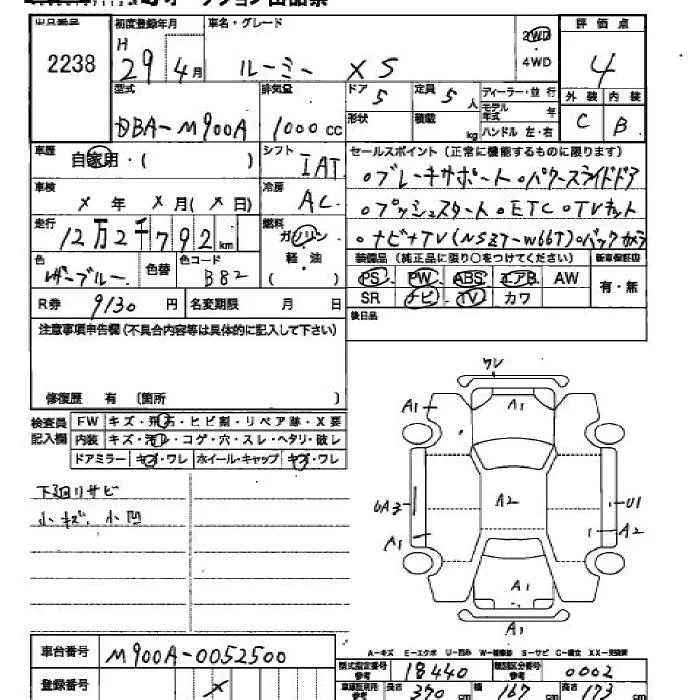 出品番号 初度登録年月 車名・グレード 2WD 評価点
2238 H 29年 4月 ルーミー XS ・4WD 4
型式 排気量 ドア 5 定員 5人 ディーラー・並行 外装 内装
DBA-M900A 1000cc 形状 積載 kg モデル年式 年 C B
ハンドル 左・右
車歴 自家用・( ) シフト IAT セールスポイント(正常に機能するものに限ります)
車検 × 年 × 月(× 日) 冷房 AC ○ブレーキサポート ○パワースライドドア
走行 12万2千792km 燃料 ガソリン ○プッシュスタート ○ETC ○TVキット
軽・油 ( ) ○ナビ+TV(NSZT-W66T)○バックカメラ
色 レーザーブルー 色替 色コード B82 装備品(純正品に限り○をつけてください) 新車保証書
PS PW ABS エアB AW 有・無
SR ナビ TV カワ
R券 9130円 名変期限 月 日 後日品
注意事項申告欄(不具合内容等は具体的に記入して下さい)
修復歴 有 〔箇所 〕
検査員記入欄 FW キズ・飛石・ヒビ割・リペア跡・X要
内装 キズ・汚レ・コゲ・穴・スレ・ヘタリ・破レ
ドアミラー キズ・ワレ ホイール・キャップ キズ・ワレ
下廻りサビ
小キズ、小凹
ワレ
A1 A1
UA3 A2 U1
A1 A2
A1
A1
A-キズ E-エクボ U-凹み W-補修跡 S-サビ C-腐食 XX-交換済
車台番号 M900A-0052500 型式指定番号 参考 18440 類別区分番号 参考 0002
登録番号 × 車庫証明用 参考 長さ 370cm 幅 167cm 高さ 173